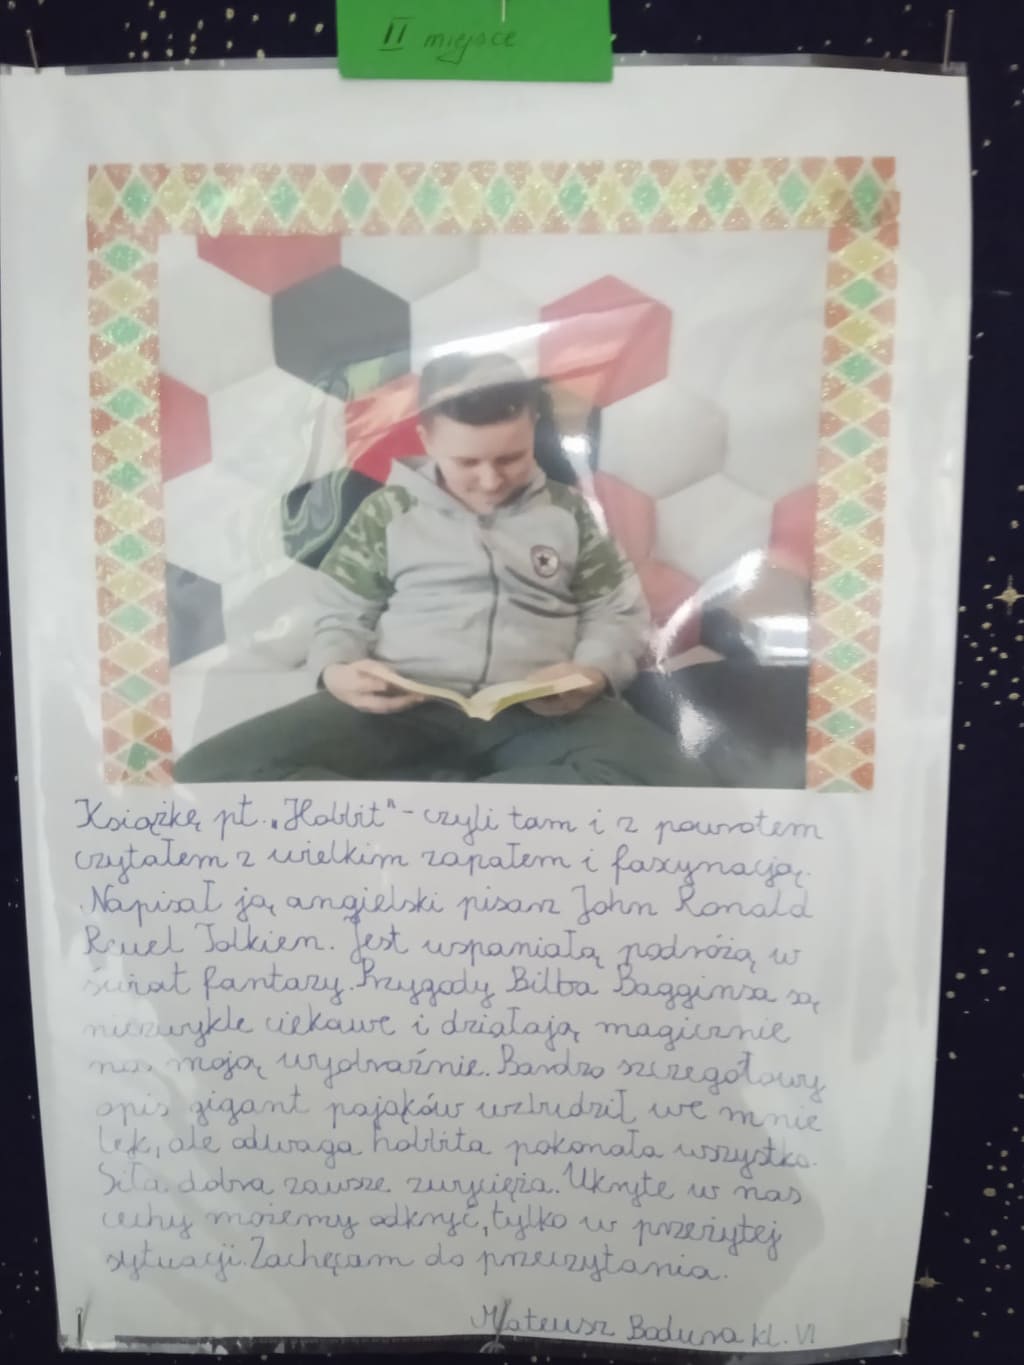 II miejsce
Książkę pt. „Hobbit" - czyli tam i z powrotem
czytałem z wielkim zapałem i fascynacją.
Napisał ją angielski pisarz John Ronald
Reuel Tolkien. Jest wspaniałą podróżą w
świat fantazy. Przygody Bilba Bagginsa są
niezwykle ciekawe i działają magicznie
na moją wyobraźnie. Bardzo szczegółowy
opis gigant pająków wzbudził we mnie
lęk, ale odwaga hobbita pokonała wszystko.
Siła dobra zawsze zwycięża. Ukryte w nas
cechy możemy odkryć, tylko w przeżytej
sytuacji. Zachęcam do przeczytania.
Mateusz Badura kl. VI